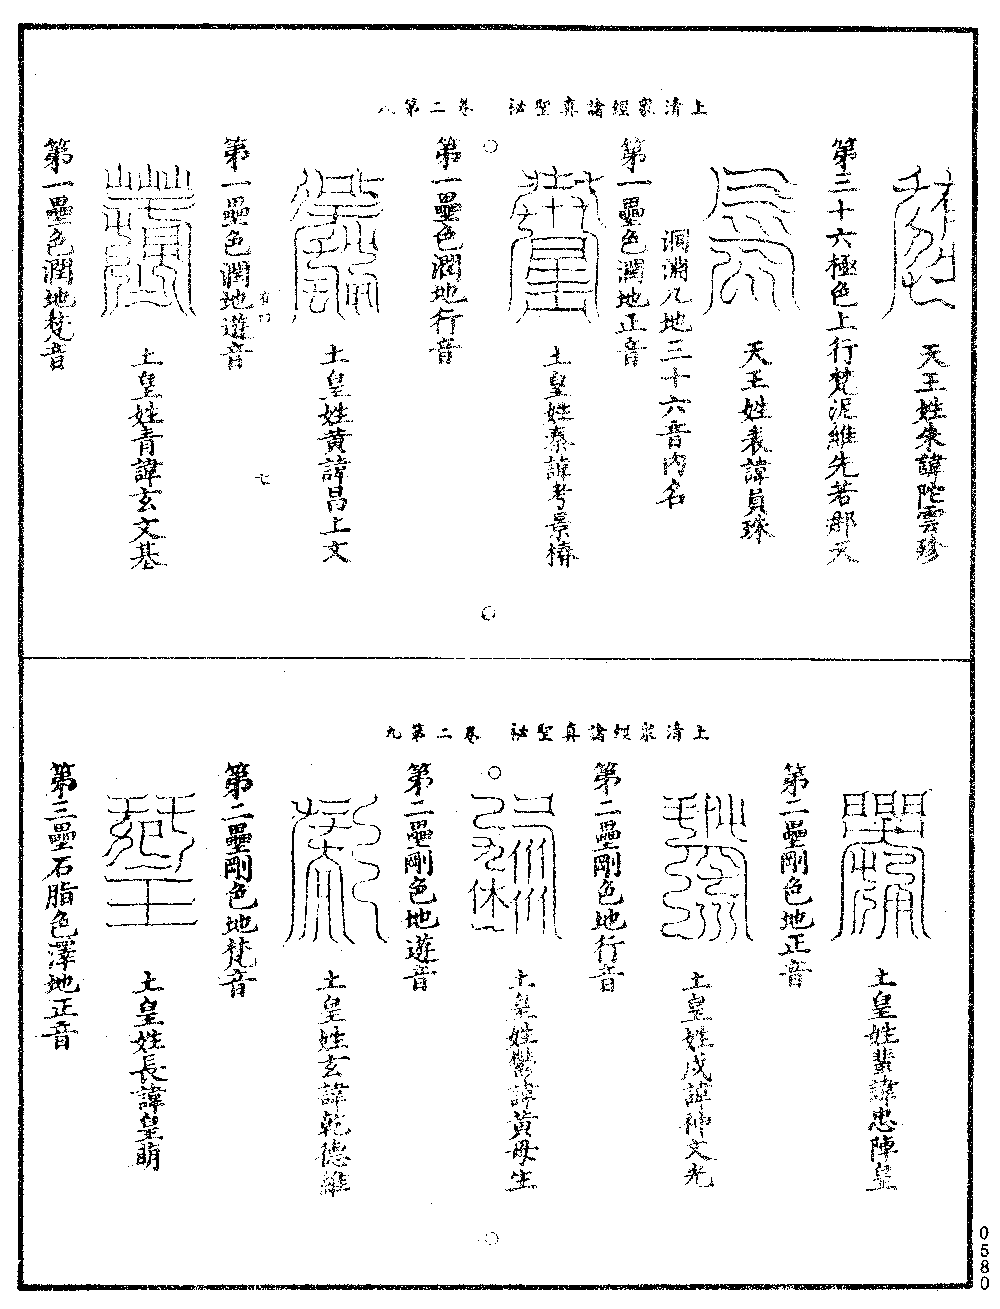 上清眾經諸真聖祕　卷二第八
天王姓朱諱陀雲彰
第三十六極色上行梵泥維先若那天
天王姓表諱員珠
洞淵九地三十六音內名
第一壘色潤地正音
土皇姓秦諱考景㯋
第一壘色潤地行音
土皇姓黃諱昌上文
第一壘色潤地遊音
七
土皇姓青諱玄文基
第一壘色潤地梵音
上清眾經諸真聖祕　卷二第九
土皇姓蜚諱忠陣皇
第二壘剛色地正音
土皇姓戌諱神文光
第二壘剛色地行音
土皇姓鬱諱黃母生
第二壘剛色地遊音
土皇姓玄諱乾德維
第二壘剛色地梵音
土皇姓長諱皇萌
第三壘石脂色澤地正音
0580